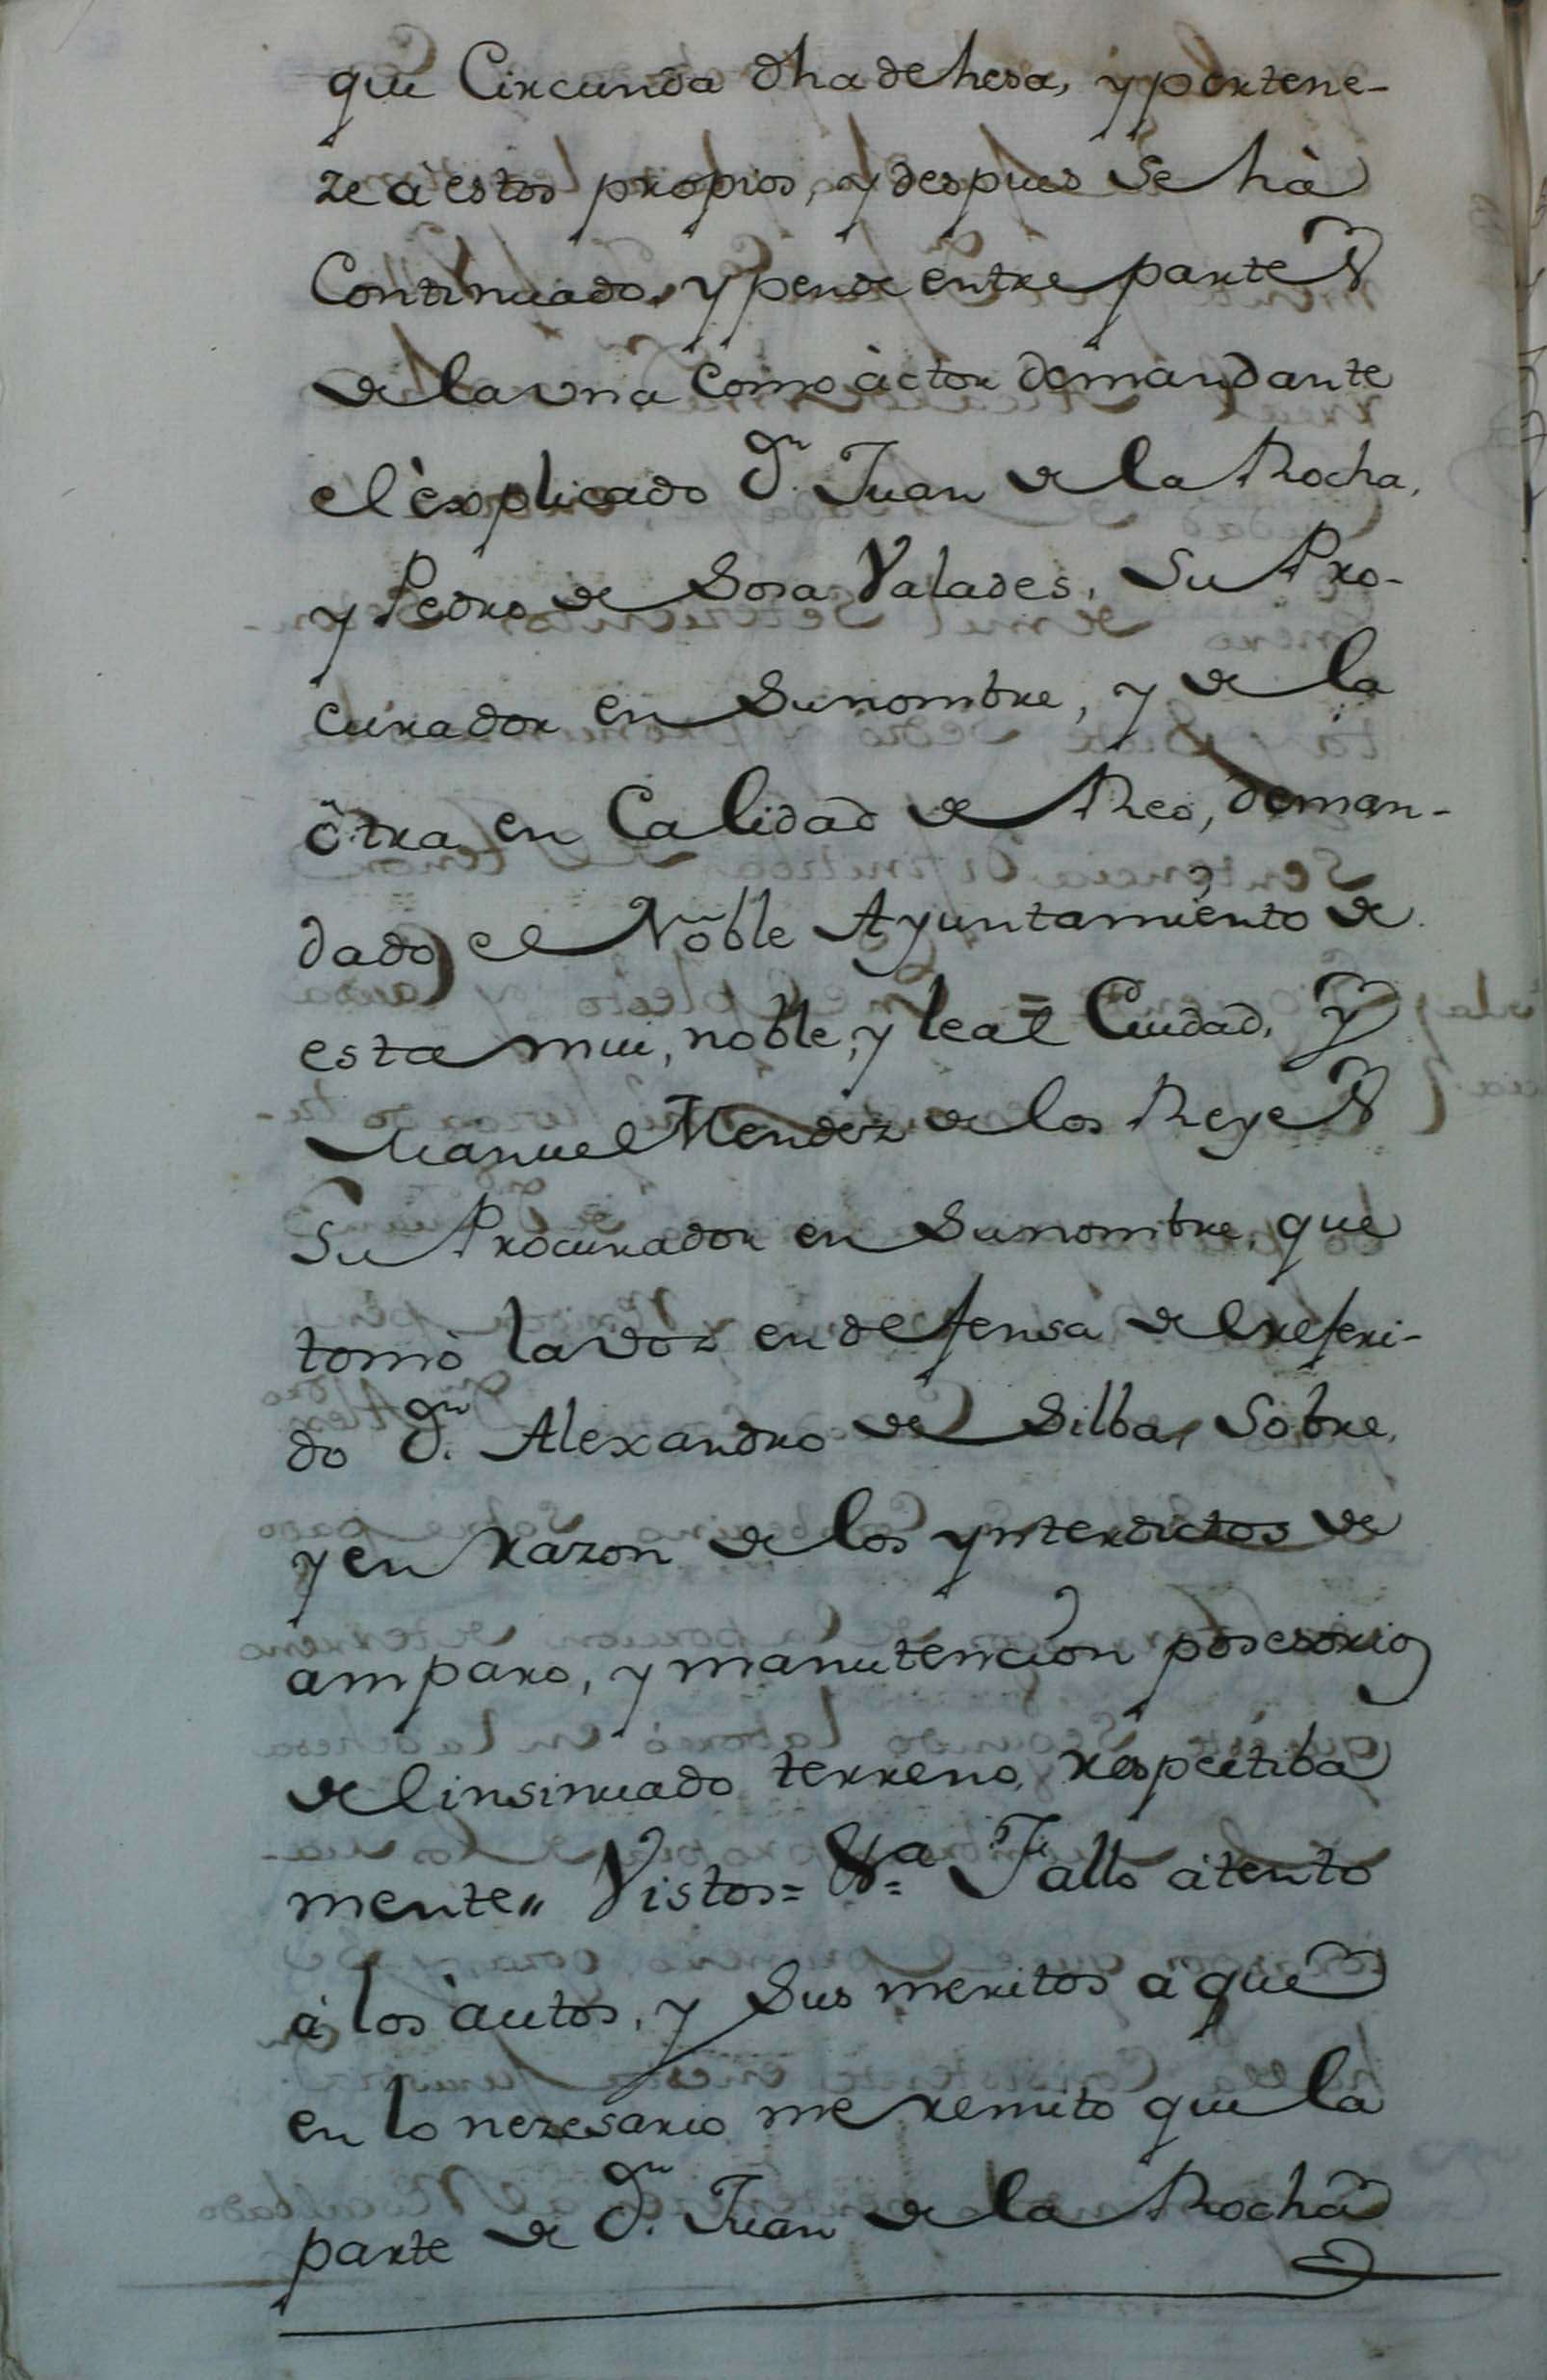 que Circunda dha dehesa, y pertene-
ze a estos propios, y despues se hà
Continuado, y pende entre partes
de la una Como àctor demandante
el èxplicado Dn. Juan de la Rocha,
y Pedro de Sosa Valades, Su Pro-
curador en Su nombre, y de la
ôtra en Calidad de Reo, deman-
dado el Noble Ayuntamiento de
esta mui, noble, y leal Ciudad, y
Manuel Mendez de los Reyes
Su Procurador en Su nombre, que
tomò la voz en defensa del referi-
do Dn. Alexandro de Silba, Sobre,
y en razon de los ynterdictos de
amparo, y manutencion posesorio
del insinuado terreno, respectiba
mente„ Vistos= &a= Fallo àtento
à los àutos, y Sus meritos a que
en lo nezesario me remito que la
parte de Dn. Juan de la Rocha